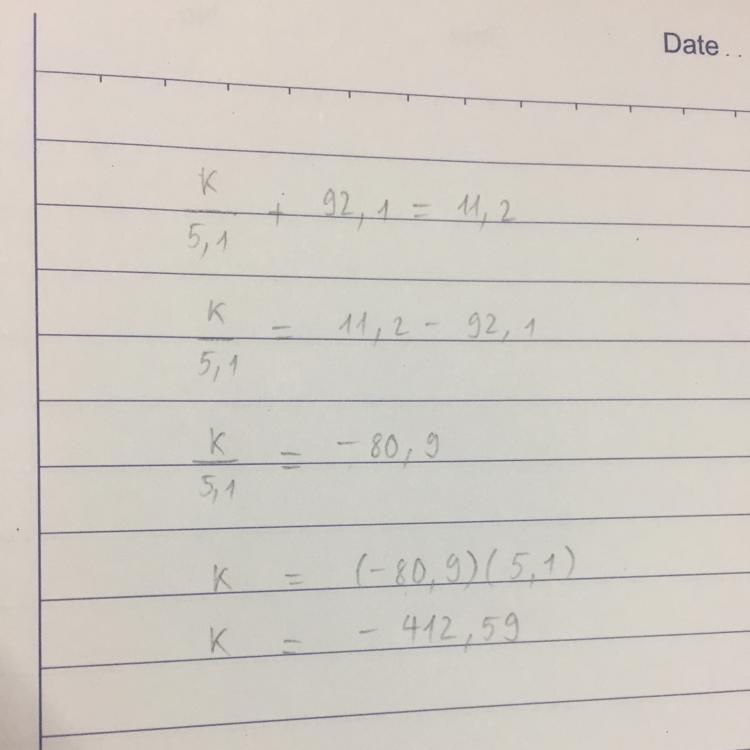 Date..
K/5,1 + 92,1 = 11,2
K/5,1 = 11,2 - 92,1
K/5,1 = -80,9
K = (-80,9)(5,1)
K = - 412,59